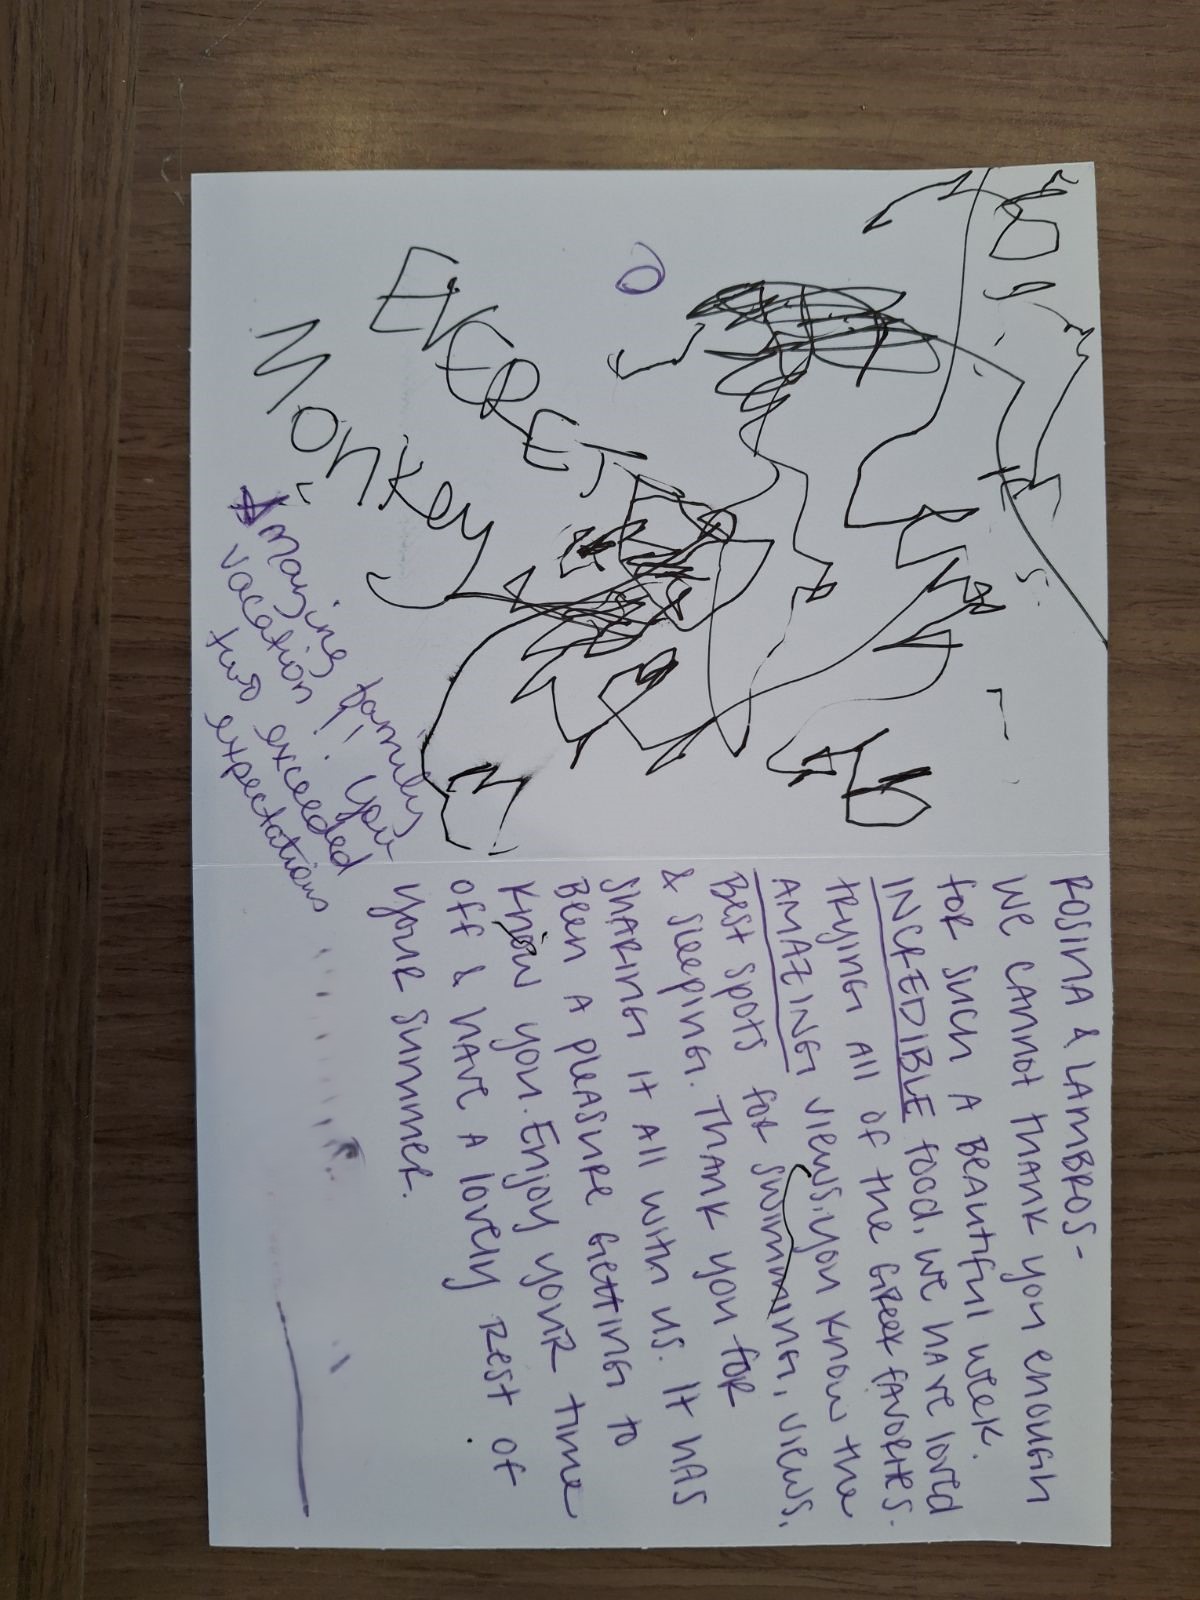 EVERET
Monkey
Amazing family
vacation! You
two exceeded
expectations
ROSINA & LAMBROS-
WE CANNOT THANK YOU ENOUGH
FOR SUCH A BEAUTIFUL WEEK.
INCREDIBLE FOOD, WE HAVE LOVED
TRYING ALL OF THE GREEK FAVORITES.
AMAZING VIEWS. YOU KNOW THE
BEST SPOTS FOR SWIMMING, VIEWS,
& SLEEPING. THANK YOU FOR
SHARING IT ALL WITH US. IT HAS
BEEN A PLEASURE GETTING TO
KNOW YOU. ENJOY YOUR TIME
OFF & HAVE A LOVELY REST OF
YOUR SUMMER.